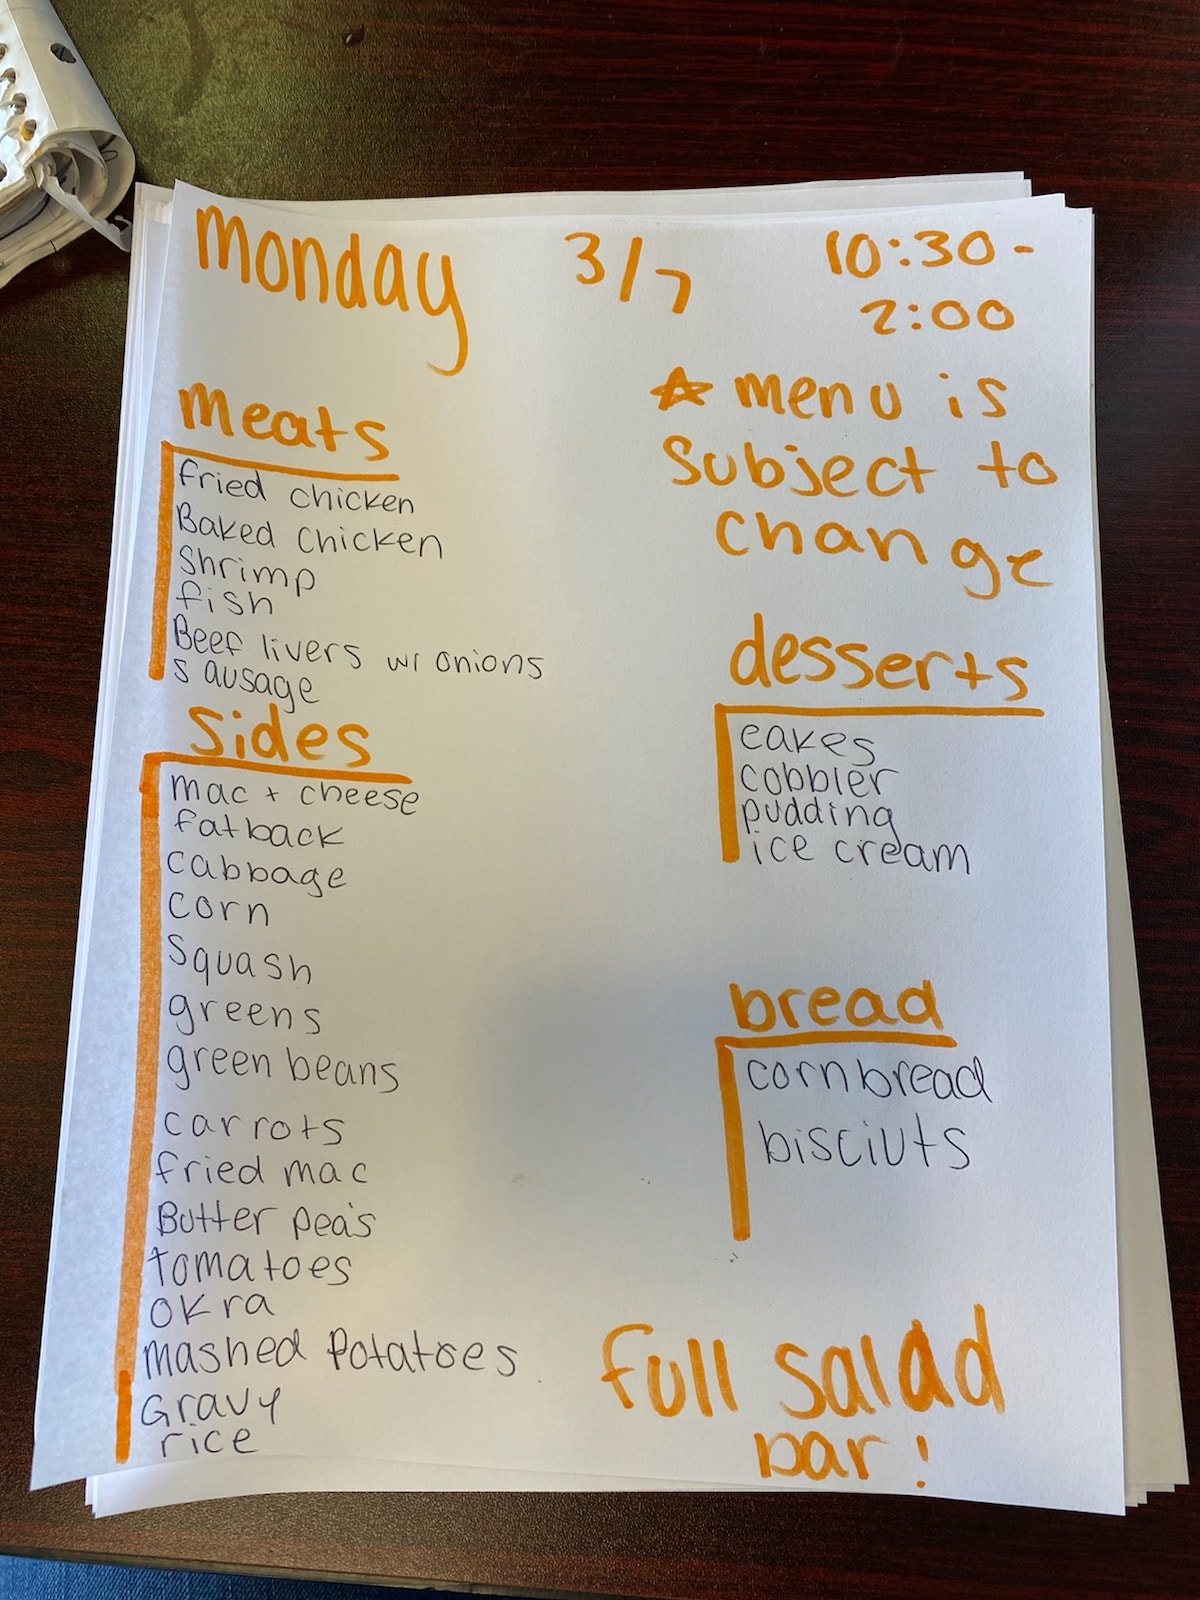 Monday 3/7 10:30-
2:00
☆ menu is
subject to
change
meats
fried chicken
Baked chicken
shrimp
fish
Beef livers w/ onions
sausage
sides
mac + cheese
fatback
cabbage
corn
squash
greens
green beans
carrots
fried mac
Butter pea's
tomatoes
okra
mashed potatoes
Gravy
rice
desserts
cakes
cobbler
pudding
ice cream
bread
cornbread
bisciuts
full salad
bar!